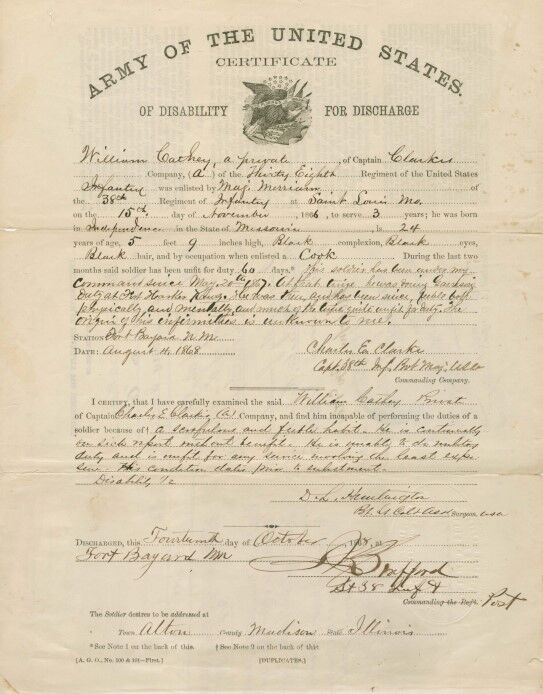 ARMY OF THE UNITED STATES.
CERTIFICATE
OF DISABILITY FOR DISCHARGE
William Cathey, a private, of Captain Clarkes
Company, (A) of the Thirty Eighth Regiment of the United States
Infantry was enlisted by Maj. Merriam of
the 38th Regiment of Infantry at Saint Louis Mo.
on the 15th day of November 1866, to serve 3 years; he was born
in Independence in the State of Missouri is 24
years of age, 5 feet 9 inches high, Black complexion, Black eyes,
Black hair, and by occupation when enlisted a Cook During the last two
months said soldier has been unfit for duty 60 days.* This soldier has been under my
command since May 20th 1867. At that time he was doing Garrison
duty at Fort Harker He was then and has been since feeble both
physically and mentally, and much of the time quite unfit for duty. The
origin of his infirmities is unknown to me.
STATION: Fort Bayard N.M.
DATE: August 4, 1868. Charles E. Clarke
Capt. 38th Inf. Bvt Maj. USA
Commanding Company.
I CERTIFY, that I have carefully examined the said William Cathey Privat
of Captain Charles E. Clarke (A) Company, and find him incapable of performing the duties of a
soldier because of † a scrofulous and feeble habit. He is continually
on sick report without benefit. He is unable to do military
duty and is unfit for any service involving the least
This condition dates prior to enlistment.
Disability
Surgeon, USA
DISCHARGED, this Fourteenth day of October 1868, at
Fort Bayard NM
38 Inf
Commanding the Reg't. Post
The Soldier desires to be addressed at
Town Alton County Madison State Illinois
*See Note 1 on the back of this. † See Note 2 on the back of this
[A. G. O., No. 100 & 101—First.] [DUPLICATES.]